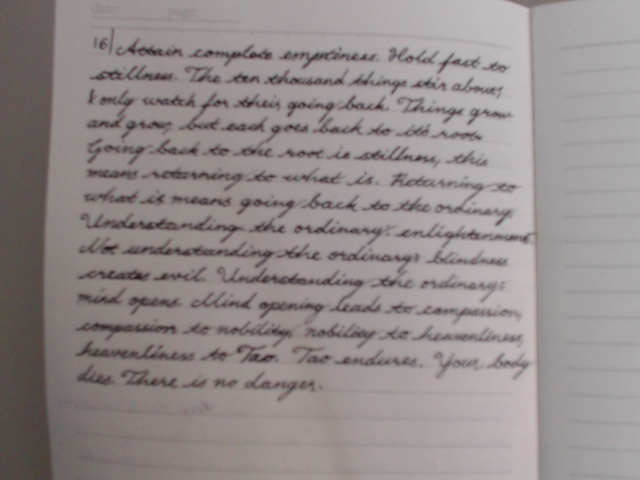 date: page:
16| Attain complete emptiness. Hold fast to
stillness. The ten thousand things stir about;
I only watch for their going back. Things grow
and grow, but each goes back to its root.
Going back to the root is stillness, this
means returning to what is. Returning to
what is means going back to the ordinary.
Understanding the ordinary: enlightenment.
Not understanding the ordinary: blindness
creates evil. Understanding the ordinary:
mind opens. Mind opening leads to compassion,
compassion to nobility, nobility to heavenliness,
heavenliness to Tao. Tao endures. Your body
dies. There is no danger.